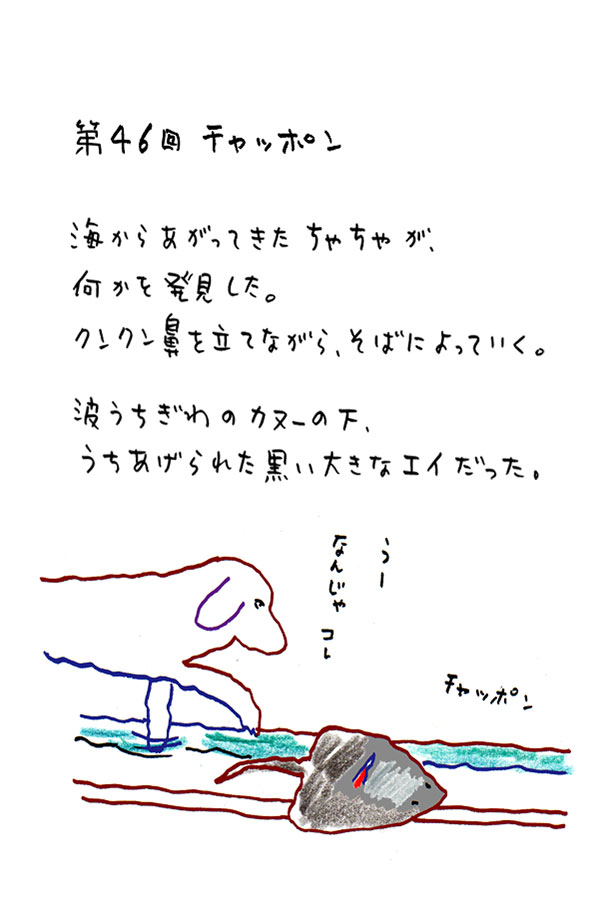 第46回 チャッポン
海からあがってきた ちゃちゃが、
何かを発見した。
クンクン鼻を立てながら、そばによっていく。
波うちぎわのカヌーの下、
うちあげられた黒い大きなエイだった。
うー
なんじゃ コレ
チャッポン